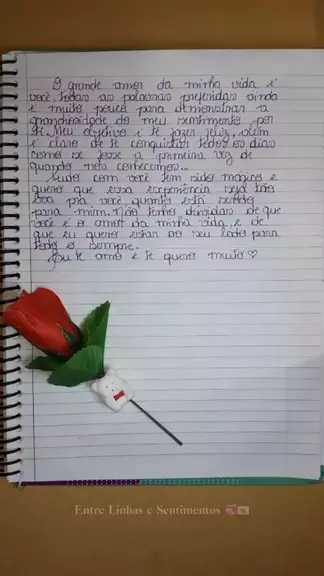 O grande amor da minha vida é
você, todas as palavras proferidas ainda
é muito pouco para demonstrar a
grandiosidade do meu sentimento por
ti. Meu objetivo é te fazer feliz, além
é claro de te conquistar todos os dias
como se fosse a primeira vez de
quando nós conhecemos...
Tudo com você tem sido mágico e
quero que essa experiência seja tão
boa pra você, quanto está sendo
para mim. Não tenho dúvidas de que
você é o amor da minha vida, e de
que eu quero estar ao seu lado para
todo o sempre.
Eu te amo e te quero muito♡
Entre Linhas e Sentimentos 💞💌